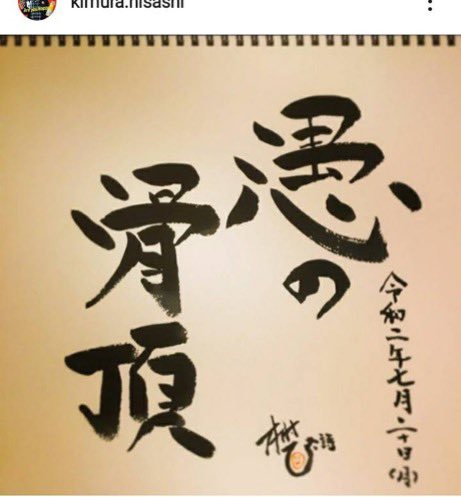 kimura.hisashi
令和二年七月二十日(月)
愚の
骨頂